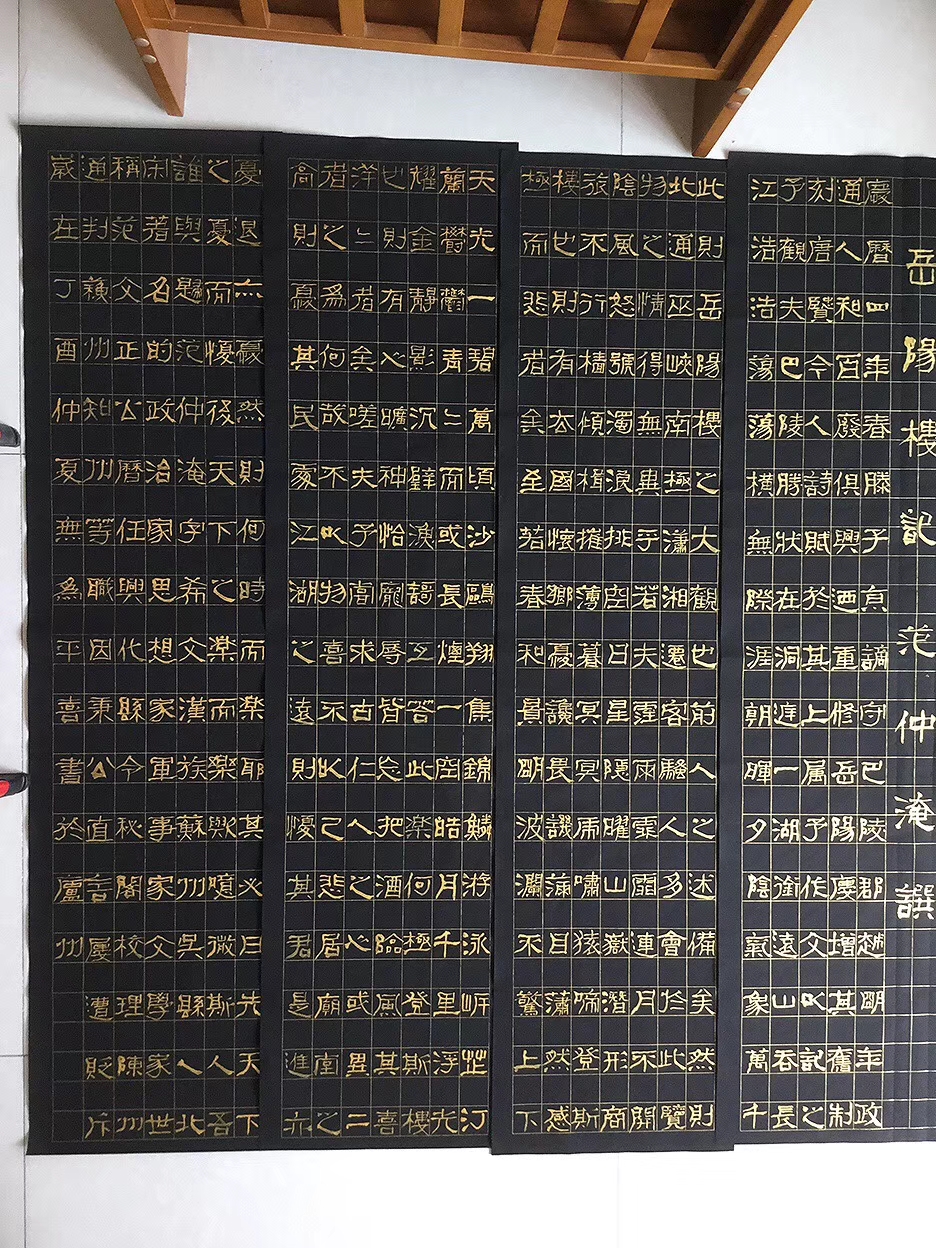 岳陽樓記 范仲淹譔
慶曆四年春滕子京謫守巴陵郡越明年政
通人和百廢俱興迺重修岳陽廔增其舊制
刻唐賢今人詩賦於其上属予作文以記之
予觀夫巴陵勝狀在洞庭一湖銜遠山吞長
江浩浩蕩蕩橫無際涯朝暉夕陰氣象萬千
此則岳陽樓之大觀也前人之述備矣然則
北通巫峽南極瀟湘遷客騷人多會於此覽
物之情得無異乎若夫霪雨霏霏連月不開
陰風怒號濁浪排空日星隱曜山嶽潛形商
旅不行檣傾楫摧薄暮冥冥虎嘯猿啼登斯
樓也則有去國懷鄉憂讒畏譏滿目蕭然感
極而悲者矣至若春和景明波瀾不驚上下
天光一碧萬頃沙鷗翔集錦鱗游泳岸芷汀
蘭鬱鬱青二而或長煙一空皓月千里浮光
耀金靜影沉璧漁謌互答此樂何極登斯樓
也則有心曠神怡寵辱皆忘把酒臨風其喜
洋二者矣嗟夫予嘗求古仁人之心或異二
者之爲何哉不以物喜不以己悲居廟堂之
高則憂其民處江湖之遠則憂其君是進亦
憂退亦憂然則何時而樂耶其必曰先天下
之憂而憂後天下之樂而樂歟噫微斯人吾
誰與歸范仲淹字希文漢族蘇州吳縣人北
宋著名的政治家思想家軍事家文學家世
稱范文正公曆任興化縣令秘閣校理陳州
通判蘇州知州等職因秉公直言屢遭貶斥
歲在丁酉仲夏無爲平喜書於廬州